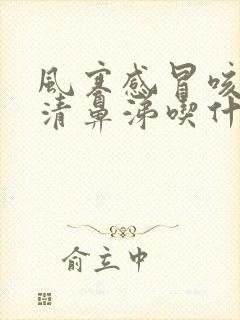 風寒感冒咳
清鼻涕喫什
俞立中